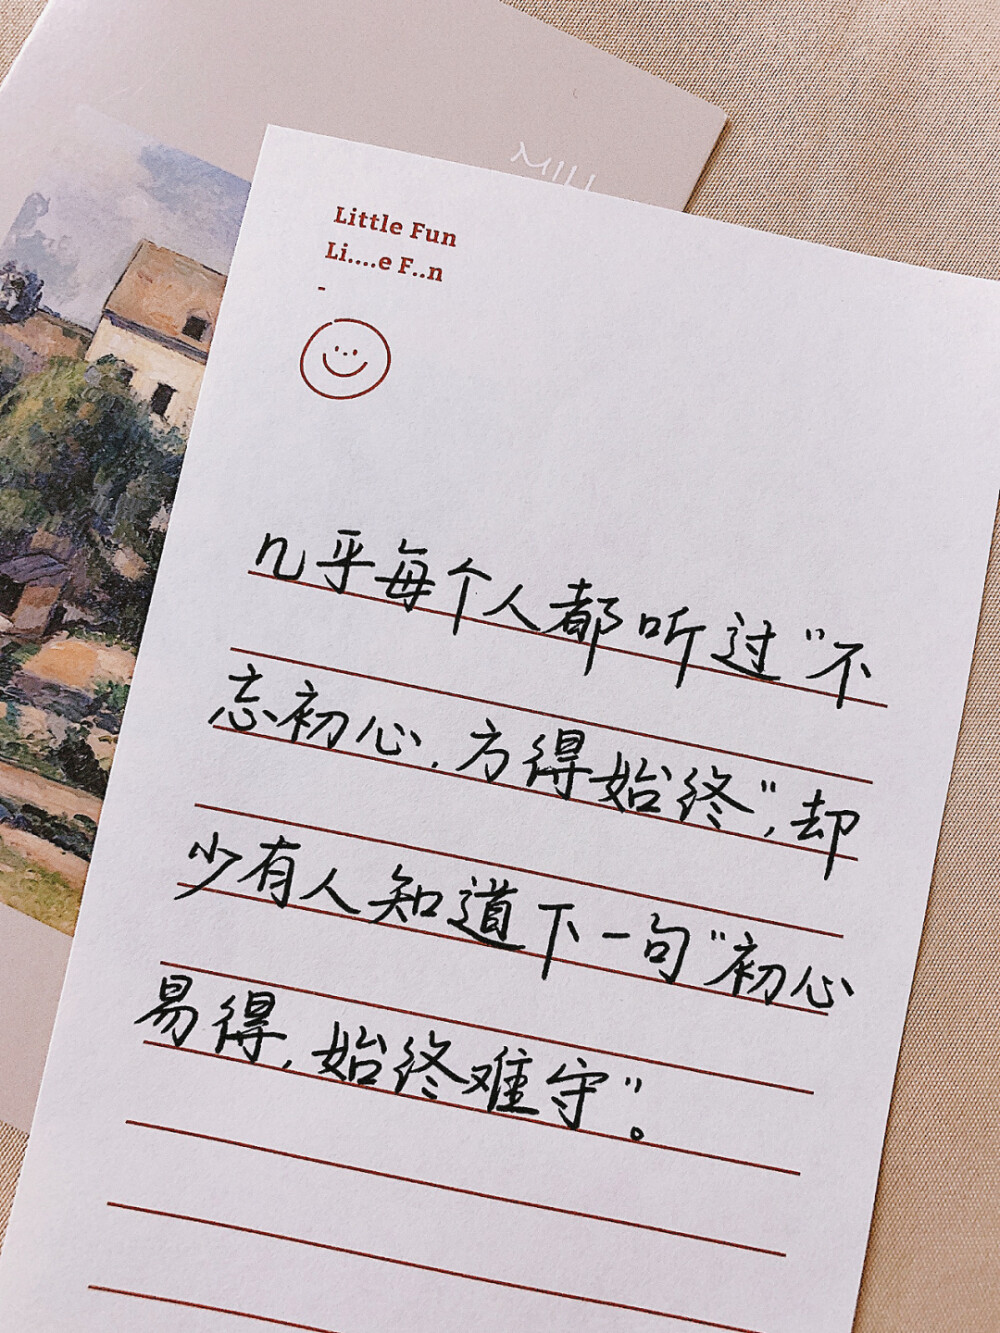 MILL
Little Fun
Li....e F..n
-
几乎每个人都听过“不
忘初心,方得始终”,却
少有人知道下一句“初心
易得,始终难守”。